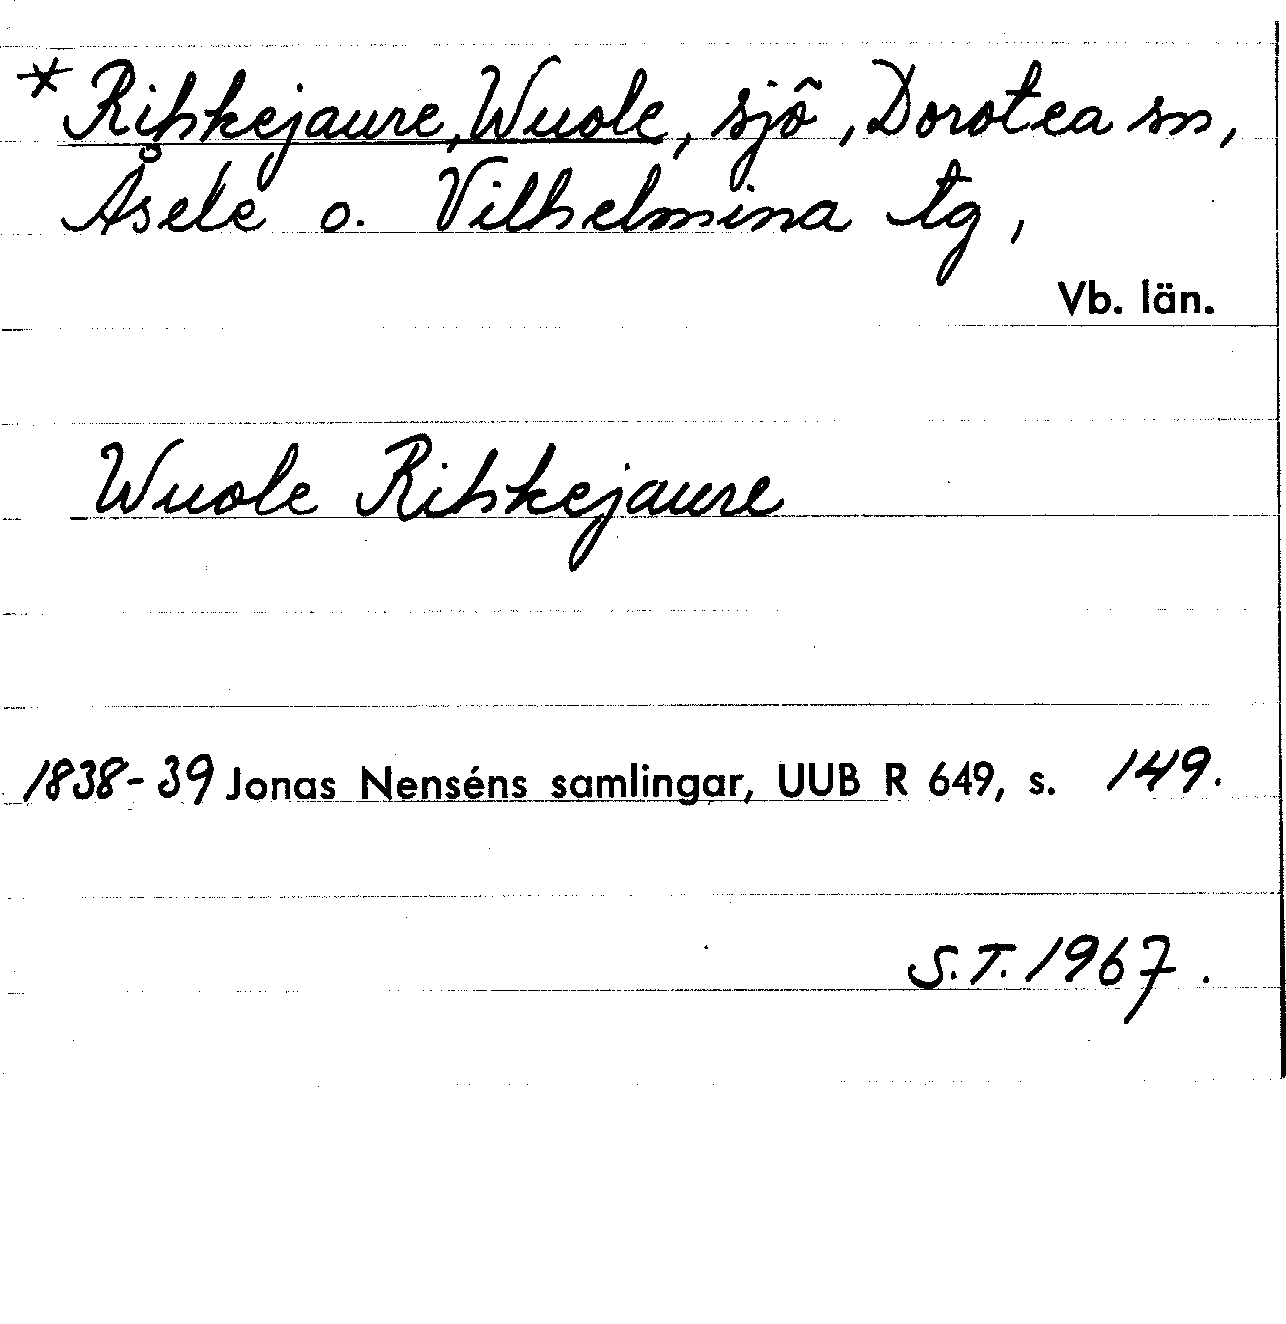 * Rihkejaure, Wuole, sjö, Dorotea sn,
Åsele o. Vilhelmina tg,
Vb. län.
Wuole Rihkejaure
1838-39 Jonas Nenséns samlingar, UUB R 649, s. 149.
S.T. 1967.